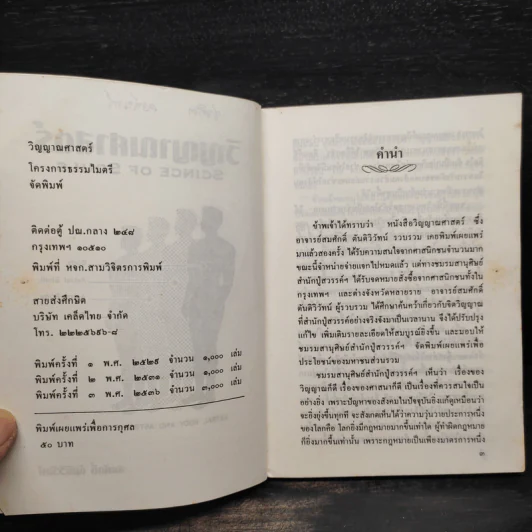 วิญญาณศาสตร์
โครงการธรรมไมตรี
จัดพิมพ์
ติดต่อตู้ ปณ.กลาง ๒๔๘
กรุงเทพฯ ๑๐๕๑๐
พิมพ์ที่ หจก.สามวิจิตรการพิมพ์
สายส่งศึกษิต
บริษัท เคล็ดไทย จำกัด
โทร. ๒๒๒๕๖๙๖-๘
พิมพ์ครั้งที่ ๑ พ.ศ. ๒๕๒๙ จำนวน ๑,๐๐๐ เล่ม
พิมพ์ครั้งที่ ๒ พ.ศ. ๒๕๓๑ จำนวน ๑,๐๐๐ เล่ม
พิมพ์ครั้งที่ ๓ พ.ศ. ๒๕๓๖ จำนวน ๓,๐๐๐ เล่ม
พิมพ์เผยแพร่เพื่อการกุศล
๕๐ บาท
คำนำ
ข้าพเจ้าได้ทราบว่า หนังสือวิญญาณศาสตร์ ซึ่ง
อาจารย์สมศักดิ์ ตันติวิวัทน์ รวบรวม เคยพิมพ์เผยแพร่
มาแล้วสองครั้ง ได้รับความสนใจจากศาสนิกชนจำนวนมาก
ขณะนี้จำหน่ายจ่ายแจกไปหมดแล้ว แต่ทางชมรมสานุศิษย์
สำนักปู่สวรรค์ฯ ได้รับจดหมายสั่งซื้อจากศาสนิกชนทั้งใน
กรุงเทพฯ และต่างจังหวัดหลายราย อาจารย์สมศักดิ์
ตันติวิวัทน์ ผู้รวบรวม ได้ศึกษาค้นคว้าเกี่ยวกับจิตวิญญาณ
ที่สำนักปู่สวรรค์อย่างจริงจังมาเป็นเวลานาน จึงได้ปรับปรุง
แก้ไข เพิ่มเติมรายละเอียดให้สมบูรณ์ยิ่งขึ้น และมอบให้
ชมรมสานุศิษย์สำนักปู่สวรรค์ฯ จัดพิมพ์เผยแพร่เพื่อ
ประโยชน์ของมหาชนส่วนรวม
ชมรมสานุศิษย์สำนักปู่สวรรค์ฯ เห็นว่า เรื่องของ
วิญญาณก็ดี เรื่องของศาสนาก็ดี เป็นเรื่องที่ควรสนใจเป็น
อย่างยิ่ง เพราะปัญหาของสังคมในปัจจุบันยิ่งแก้ดูเหมือนว่า
จะยิ่งยุ่งขึ้นทุกที จะสังเกตเห็นได้ว่าความวุ่นวายประการหนึ่ง
ของโลกคือ โลกยิ่งมีกฎหมายมากขึ้นเท่าใด ผู้ทำผิดกฎหมาย
ก็ยิ่งมากขึ้นเท่านั้น เพราะกฎหมายเป็นเพียงมาตรการหนึ่ง